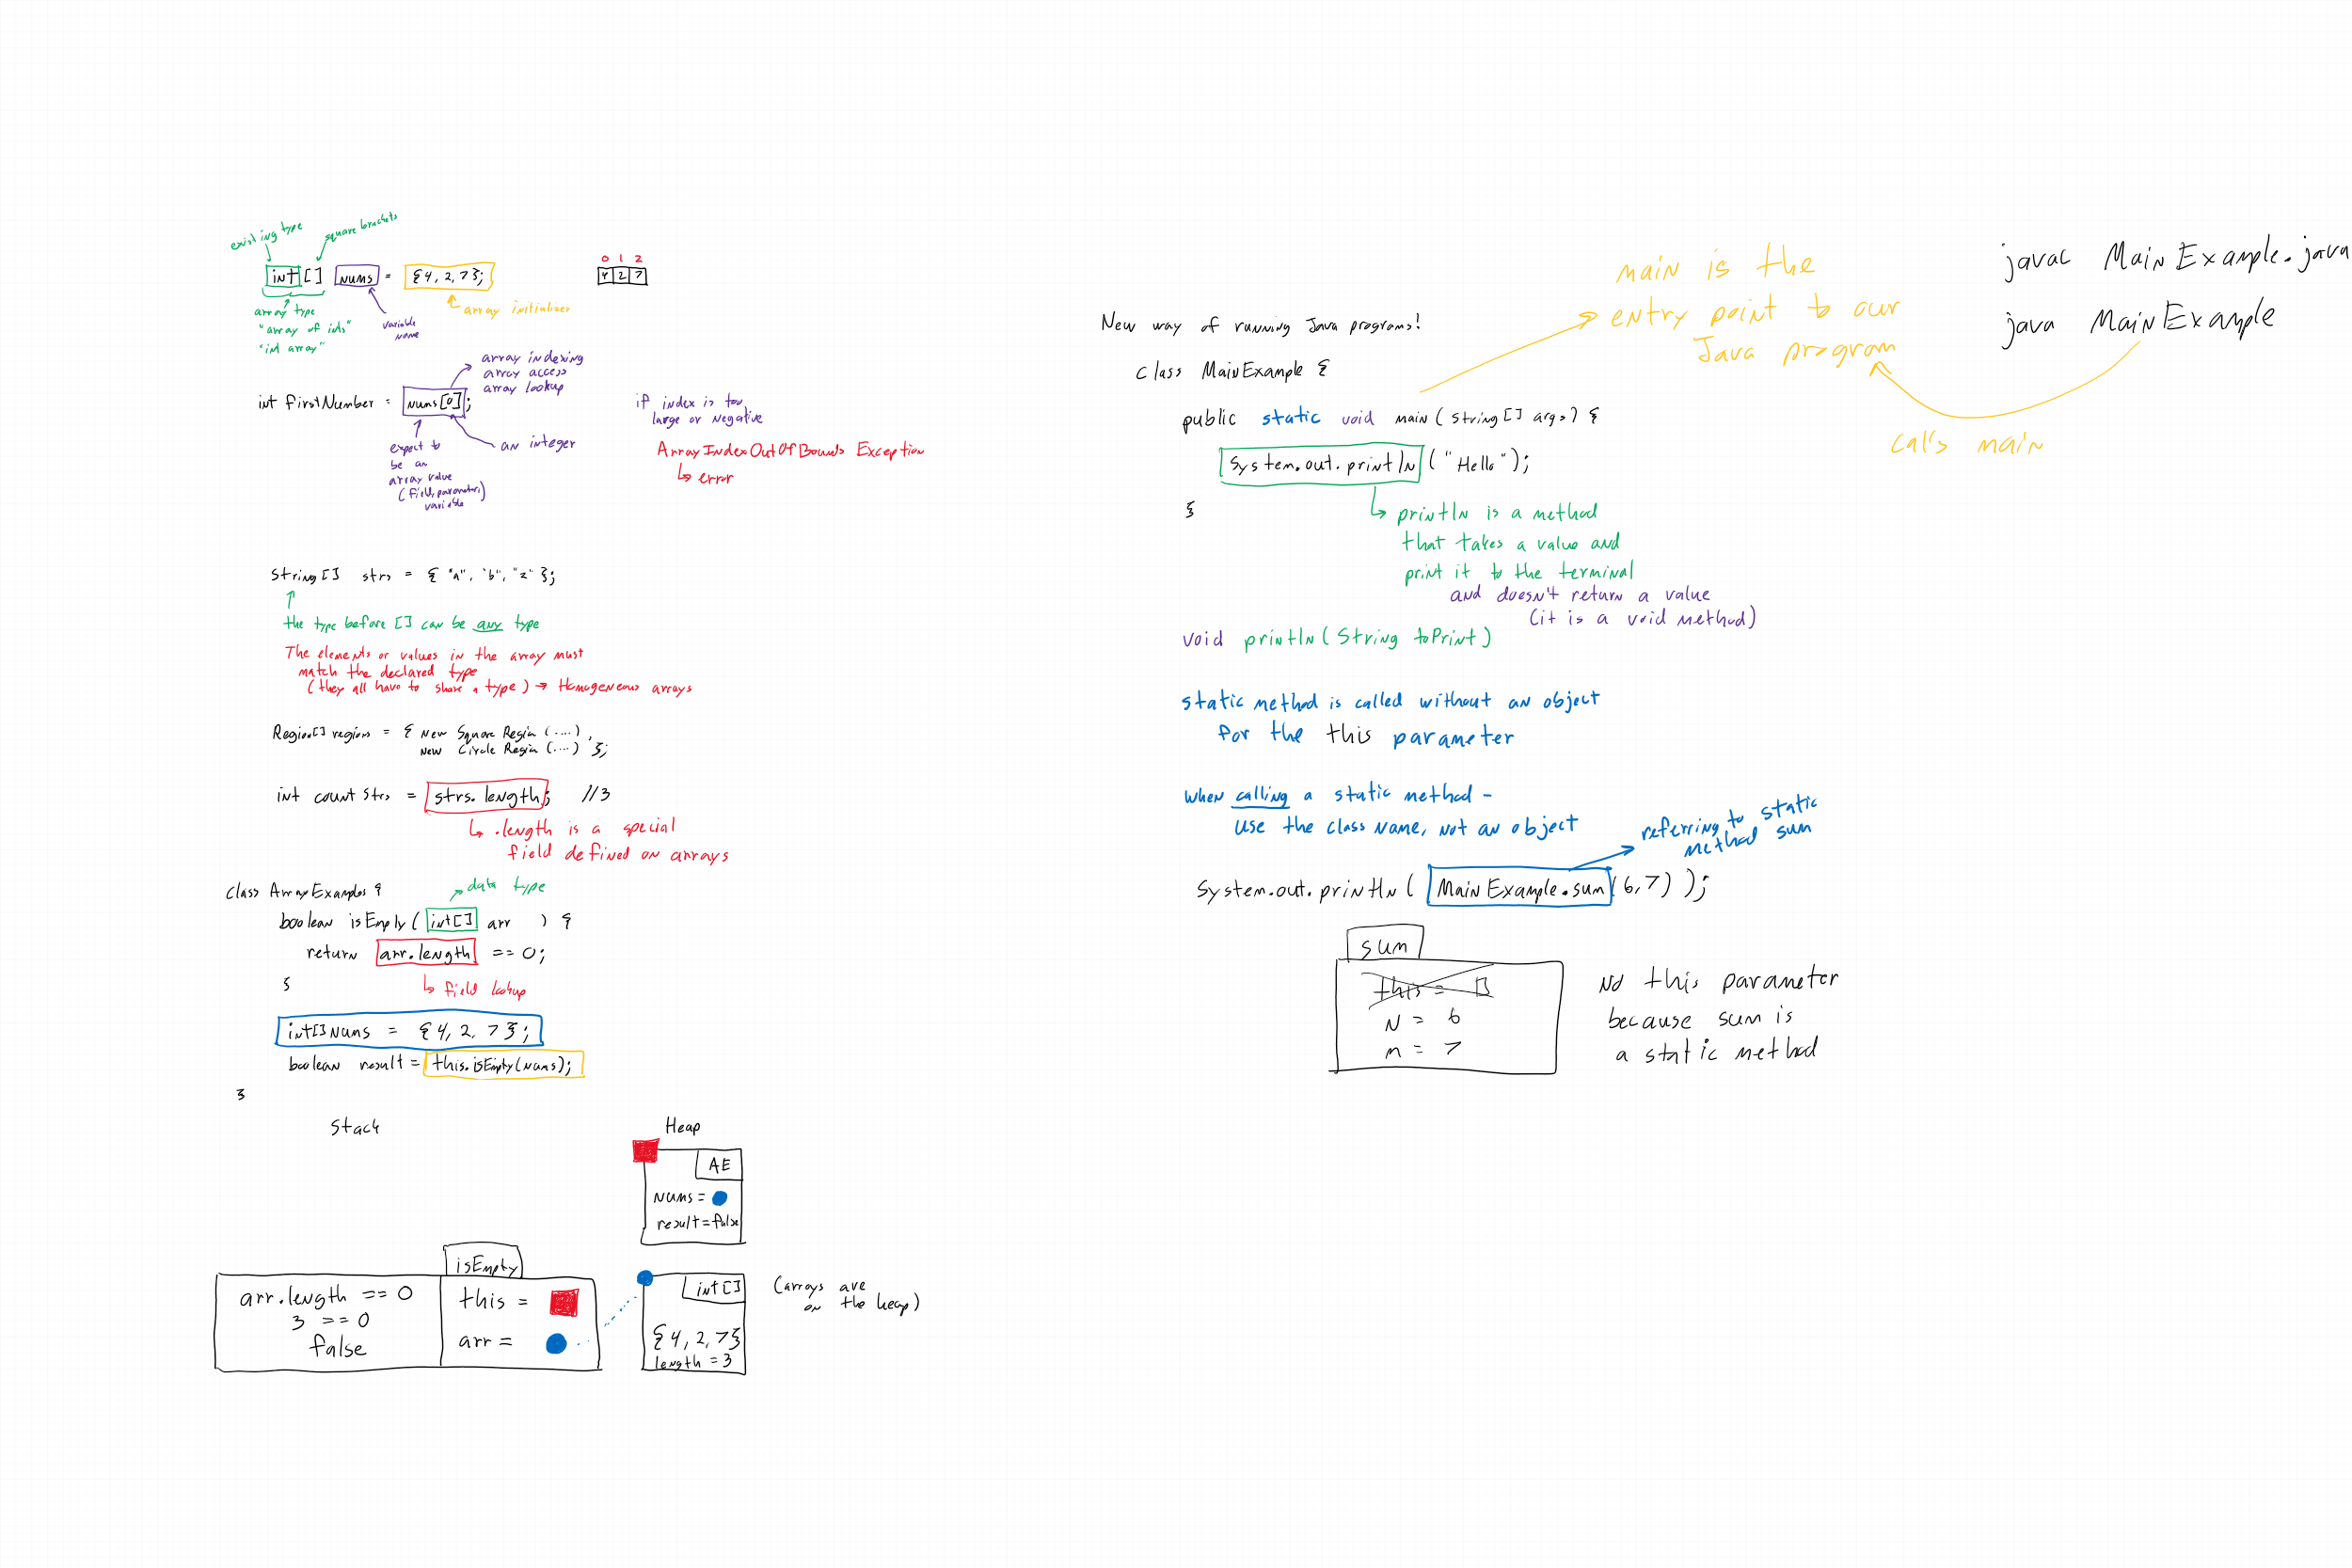 existing type
square brackets
int [] nums = {4, 2, 7};
0 1 2
4 2 7
array type
"array of ints"
"int array"
variable name
array initializer
array indexing
array access
array lookup
int firstNumber = nums[0];
an integer
expect to
be an
array value
(field, parameter,
variable)
if index is too
large or negative
ArrayIndexOutOfBounds Exception
error
String[] strs = { "a", "b", "z" };
the type before [] can be any type
The elements or values in the array must
match the declared type
(they all have to share a type) → Homogeneous arrays
Region[] regions = { new Square Region (....),
new Circle Region (...) };
int count Strs = strs.length; //3
.length is a special
field defined on arrays
class ArrayExamples {
data type
boolean isEmpty( int[] arr ) {
return arr.length == 0;
}
field lookup
int[] nums = {4, 2, 7};
boolean result = this.isEmpty(nums);
}
Stack
Heap
AE
nums =
result = false
isEmpty
arr.length == 0
3 == 0
false
this =
arr =
int[]
{4, 2, 7}
length = 3
(arrays are
on the heap)
New way of running Java programs!
class MainExample {
public static void main (String[] args) {
System.out.println ("Hello");
}
main is the
entry point to our
Java program
javac MainExample.java
java MainExample
calls main
println is a method
that takes a value and
print it to the terminal
and doesn't return a value
(it is a void method)
void println( String toPrint)
static method is called without an object
for the this parameter
when calling a static method -
use the class name, not an object
referring to static
method sum
System.out.println( MainExample.sum(6,7) );
sum
this =
n = 6
m = 7
No this parameter
because sum is
a static method